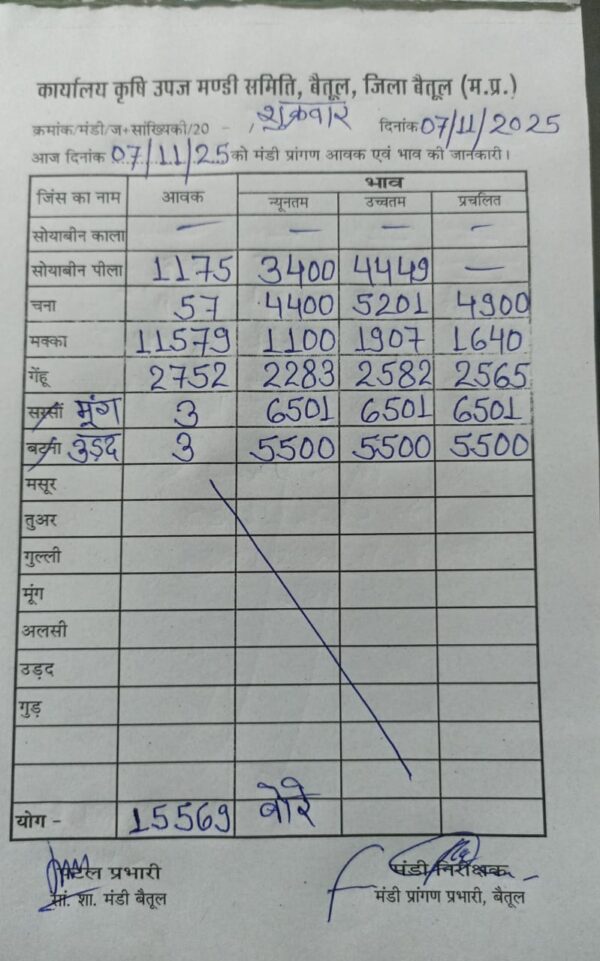 कार्यालय कृषि उपज मण्डी समिति, बैतूल, जिला बैतूल (म.प्र.)
क्रमांक/मंडी/ज+सांख्यिकी/20 - , शुक्रवार दिनांक 07/11/2025
आज दिनांक 07/11/25 को मंडी प्रांगण आवक एवं भाव की जानकारी।
जिंस का नाम आवक भाव
न्यूनतम उच्चतम प्रचलित
सोयाबीन काला — — — -
सोयाबीन पीला 1175 3400 4449 —
चना 57 4400 5201 4900
मक्का 11579 1100 1907 1640
गेंहू 2752 2283 2582 2565
सरसों मूंग 3 6501 6501 6501
बटरी उड़द 3 5500 5500 5500
मसूर
तुअर
गुल्ली
मूंग
अलसी
उड़द
गुड़
योग - 15569 बोरे
पटल प्रभारी मंडी निरीक्षक
सां. शा. मंडी बैतूल मंडी प्रांगण प्रभारी, बैतूल